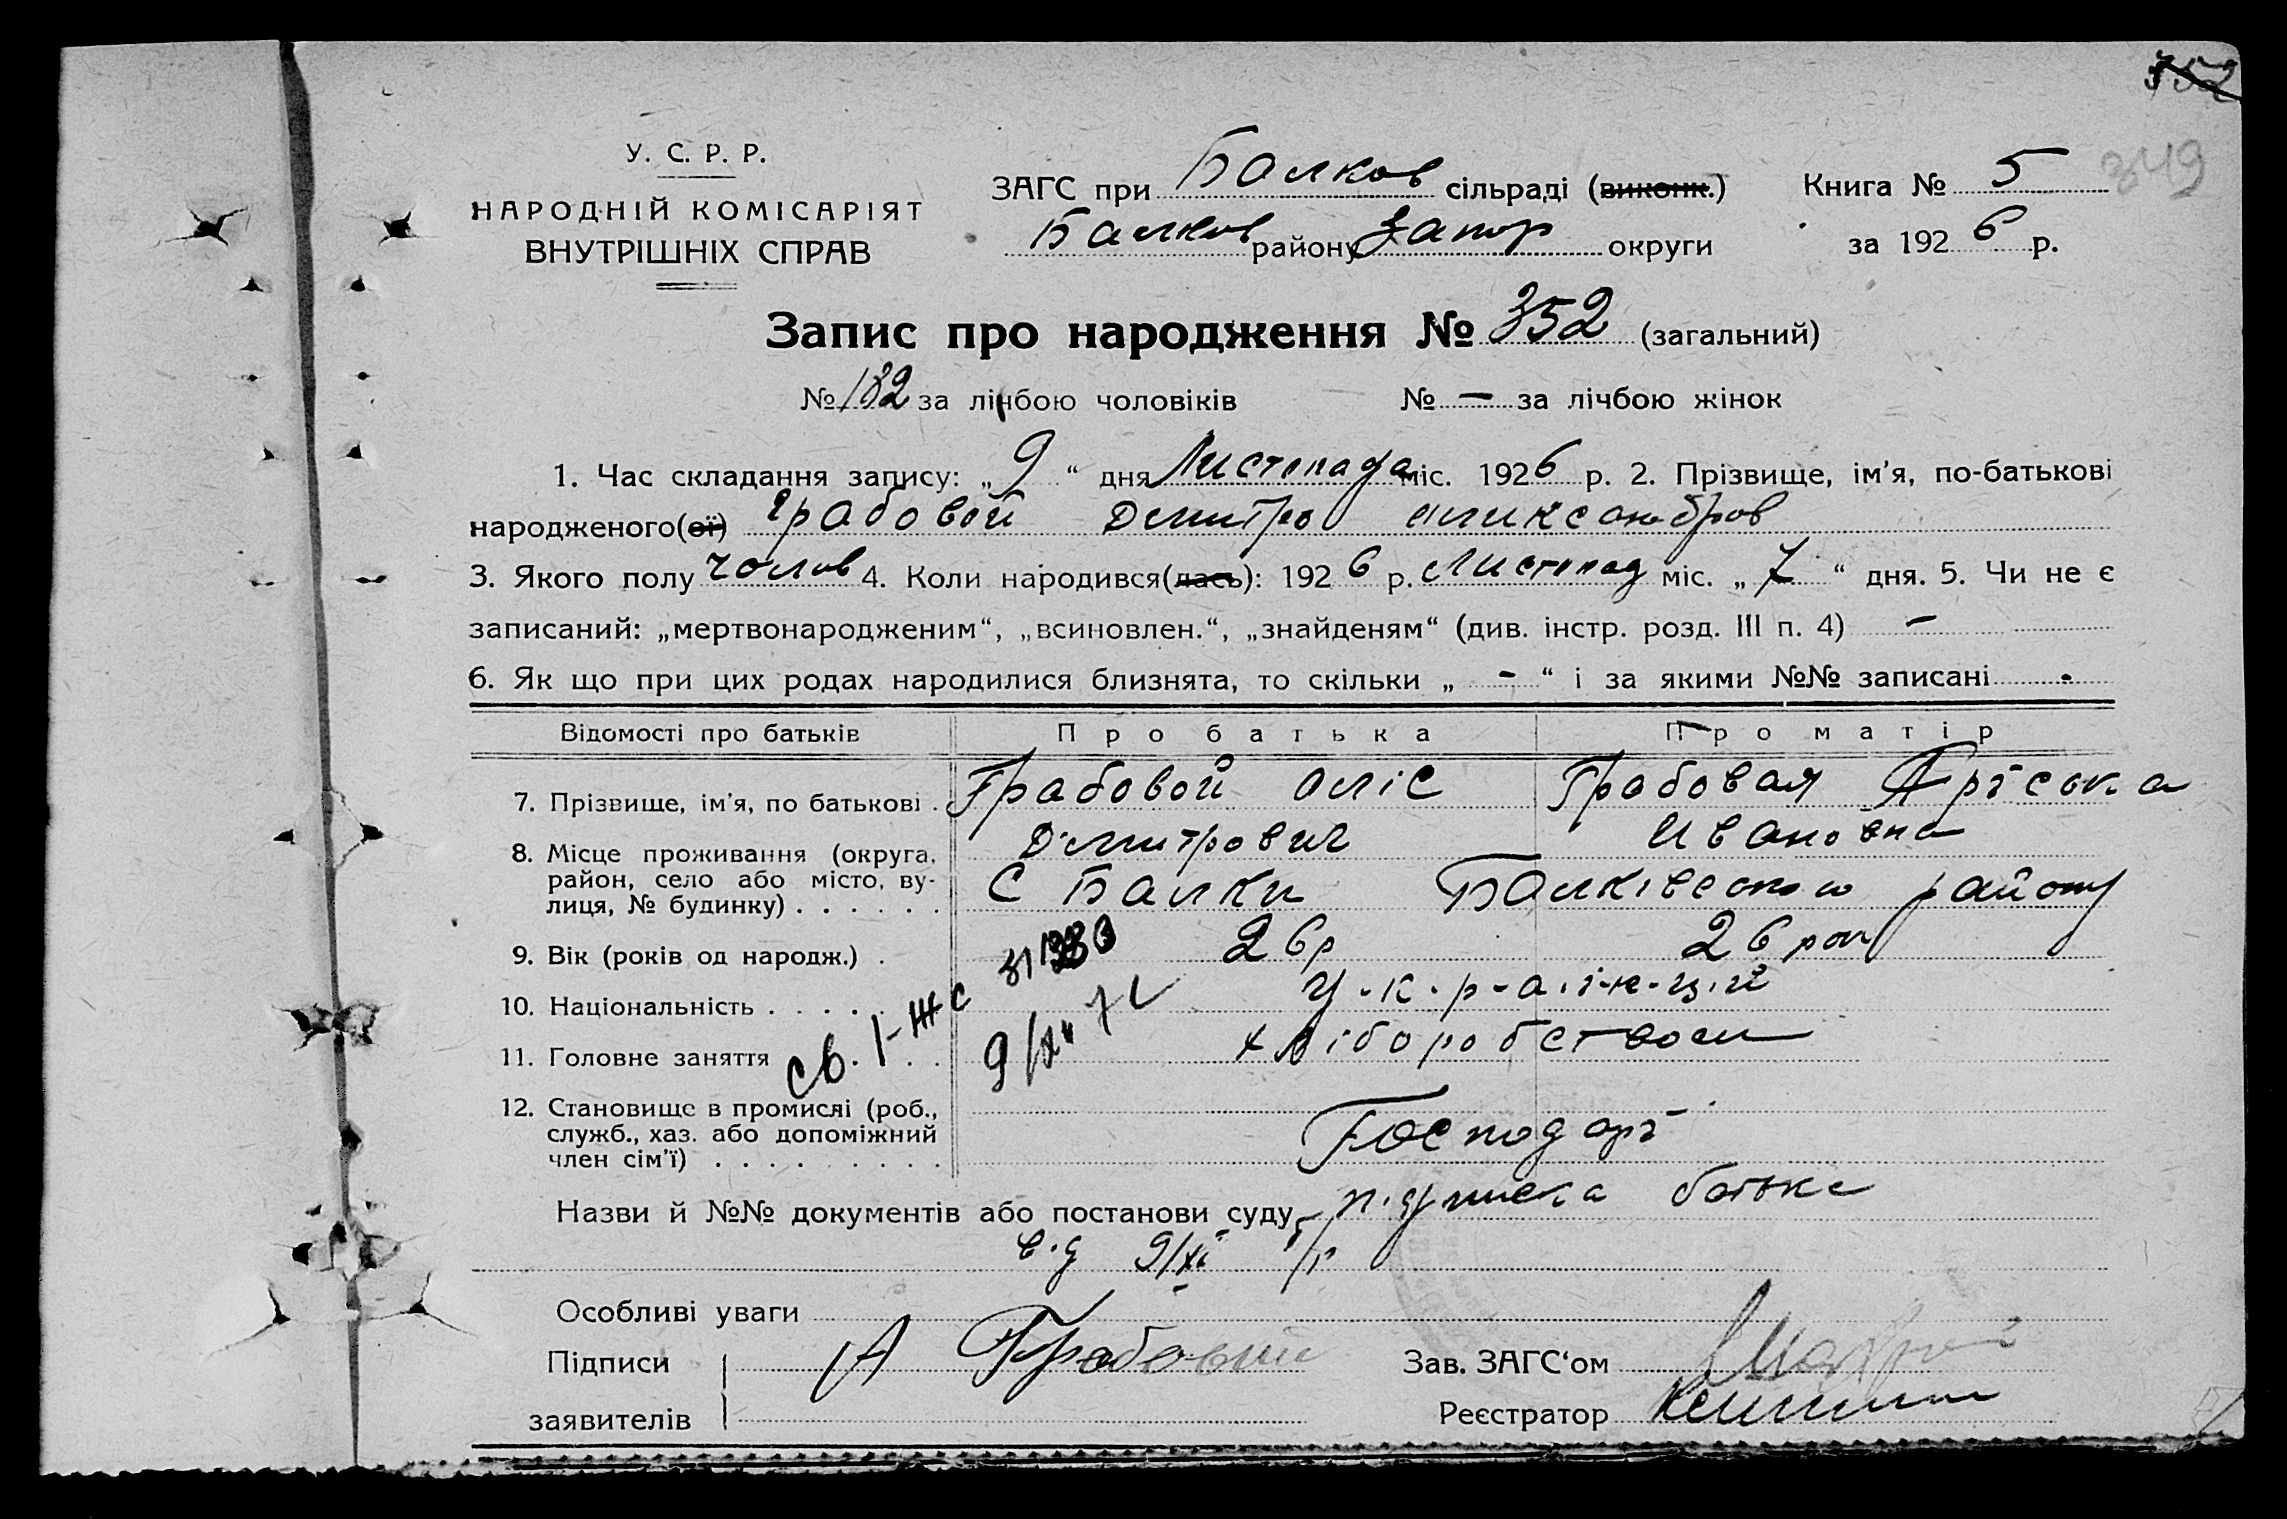 352
У. С. Р. Р.
НАРОДНІЙ КОМІСАРІЯТ
ВНУТРІШНІХ СПРАВ
ЗАГС при Балков сільраді (виконк.) Книга № 5 349
Балков району Запор округи за 1926 р.
Запис про народження № 352 (загальний)
№ 182 за лічбою чоловіків № — за лічбою жінок
1. Час складання запису: „ 9 “ дня Листопада міс. 1926 р. 2. Прізвище, ім'я, по-батькові
народженого(ої) Грабовой Дмитро Аликсандров
3. Якого полу чолов 4. Коли народився(лась): 1926 р. Листопад міс. „ 7 “ дня. 5. Чи не є
записаний: „мертвонародженим“, „всиновлен.“, „знайденям“ (див. інстр. розд. III п. 4) —
6. Як що при цих родах народилися близнята, то скільки „ - “ і за якими №№ записані -
Відомості про батьків Про батька Про матір
7. Прізвище, ім'я, по батькові . Грабовой Аліс Грабовая
Дмитрович Ивановна
8. Місце проживання (округа,
район, село або місто, ву-
лиця, № будинку) . . . . . . С Балки Балківского району
9. Вік (років од народж.) . 26р 26 рок
10. Національність . . . . . У-к-р-а-ї-н-ц-и
11. Головне заняття . . . хліборобством
св. І-ЖС
12. Становище в промислі (роб.,
служб., хаз. або допоміжний
член сім'ї) . . . . . . . . . Господарь
Назви й №№ документів або постанови суду підписка батька
від 9/XI
Особливі уваги
Підписи А Грабовий Зав. ЗАГС'ом
заявителів Реєстратор